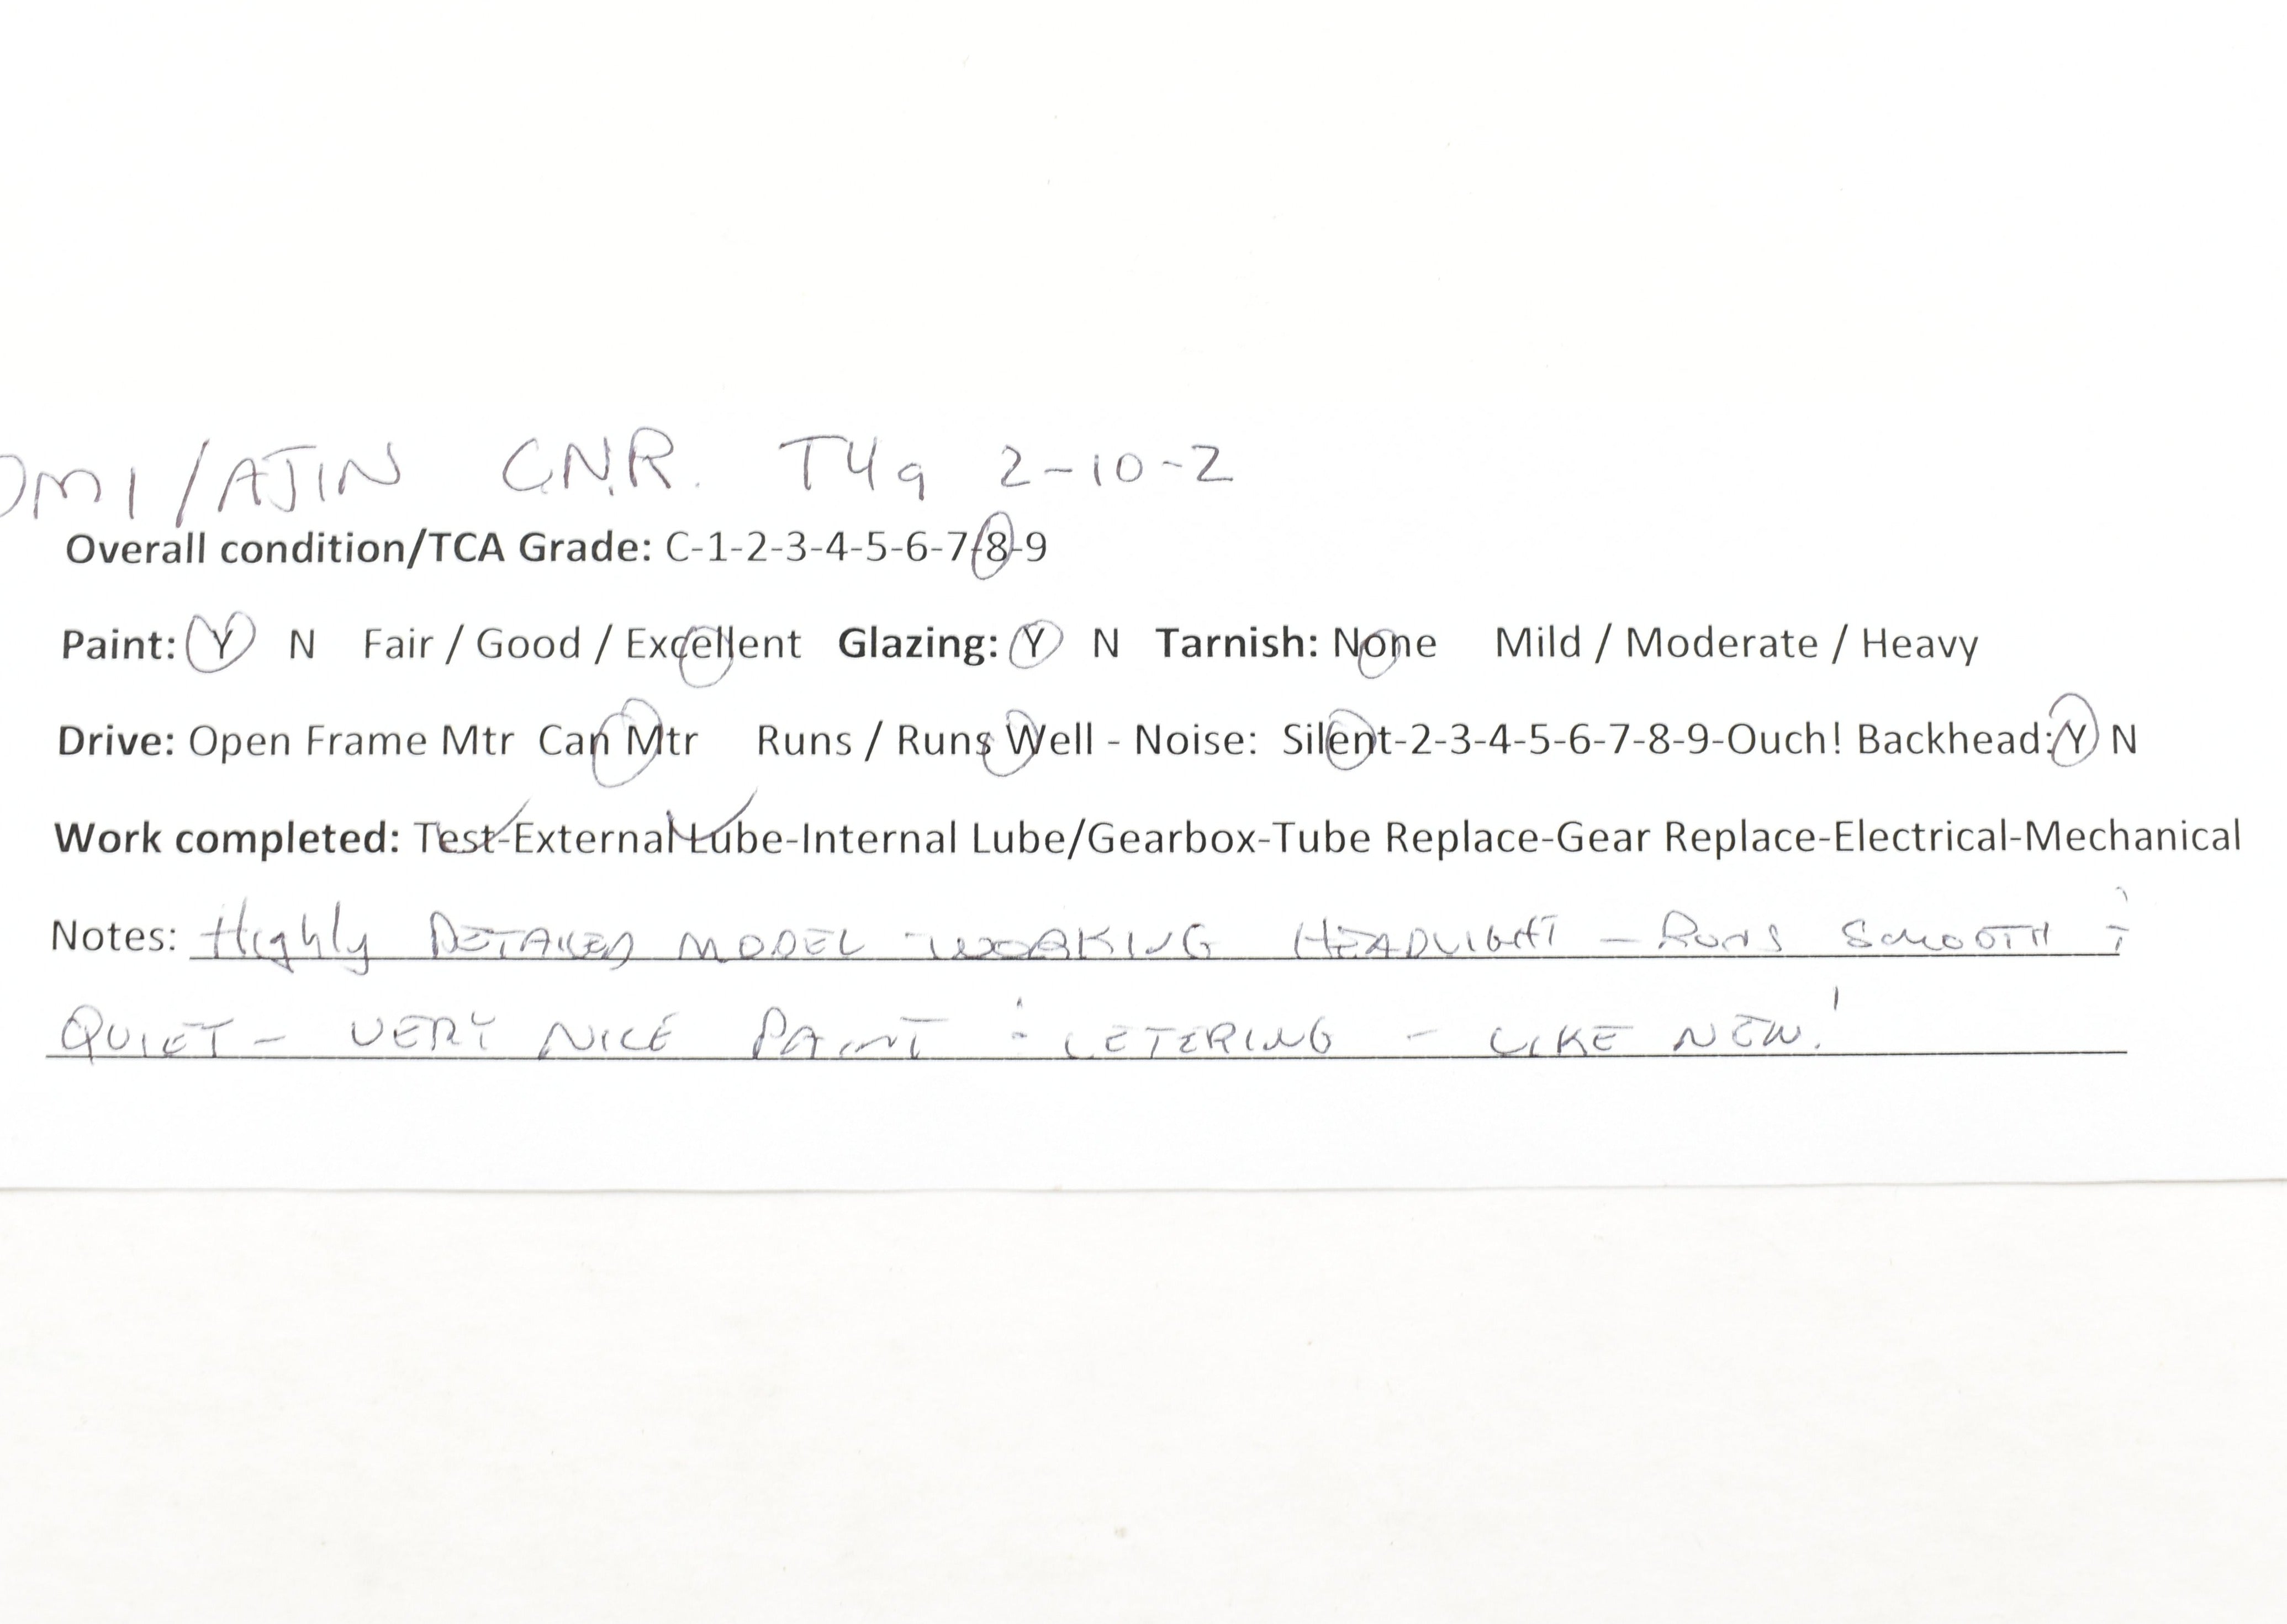 OMI/AJIN C.N.R. T4a 2-10-2
Overall condition/TCA Grade: C-1-2-3-4-5-6-7-8-9
Paint: Y N Fair / Good / Excellent Glazing: Y N Tarnish: None Mild / Moderate / Heavy
Drive: Open Frame Mtr Can Mtr Runs / Runs Well - Noise: Silent-2-3-4-5-6-7-8-9-Ouch! Backhead: Y N
Work completed: Test-External Lube-Internal Lube/Gearbox-Tube Replace-Gear Replace-Electrical-Mechanical
Notes: Highly DETAILED MODEL - WORKING HEADLIGHT - RUNS SMOOTH &
QUIET - VERY NICE PAINT & LETERING - LIKE NEW!